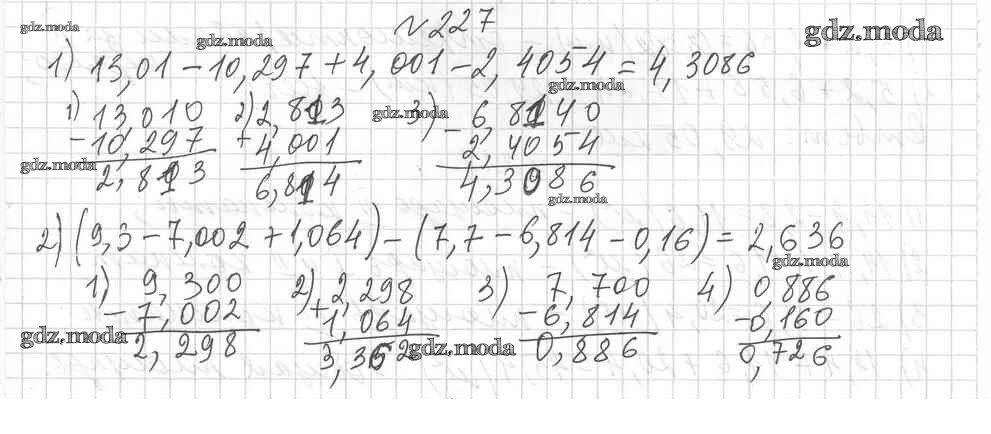 №227
gdz.moda gdz.moda gdz.moda
1) 13,01 − 10,297 + 4,001 − 2,4054 = 4,3086
gdz.moda gdz.moda
1) 13,010 2) 2,813 3) 6,8140
− 10,297 + 4,001 − 2,4054
gdz.moda
2,813 6,814 4,3086
gdz.moda
2) (9,3 − 7,002 + 1,064) − (7,7 − 6,814 − 0,16) = 2,636
gdz.moda
1) 9,300 2) 2,298 3) 7,700 4) 0,886
− 7,002 + 1,064 − 6,814 − 0,160
gdz.moda gdz.moda
2,298 3,362 0,886 0,726